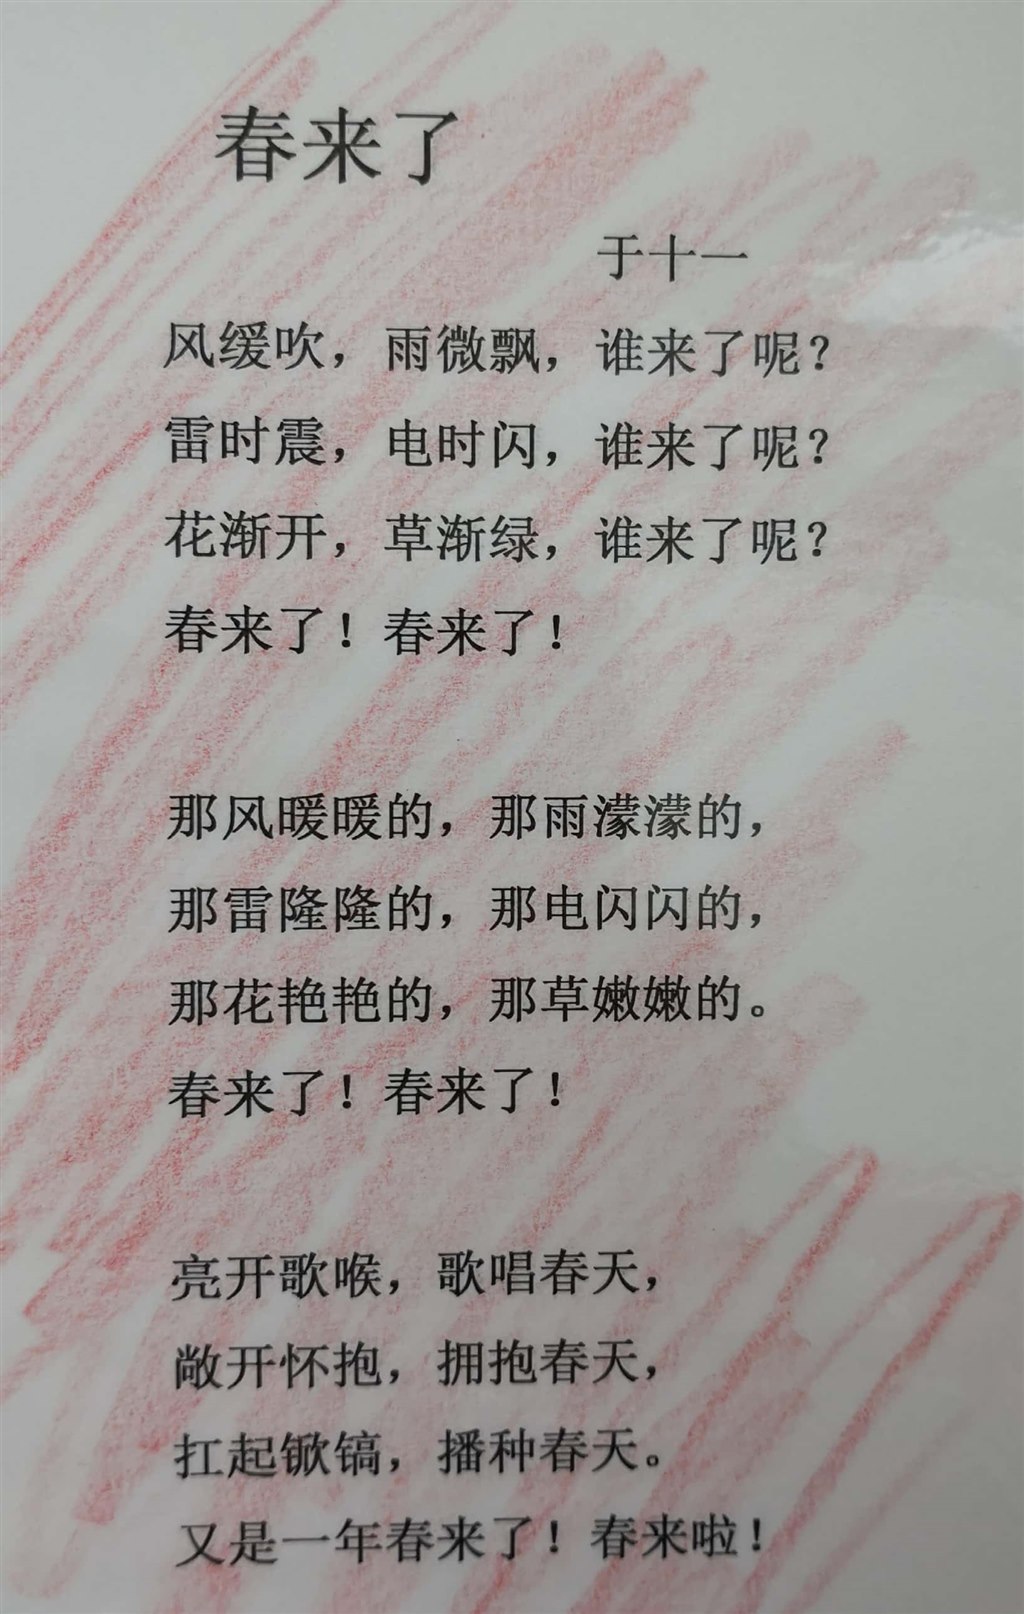 春来了
于十一
风缓吹，雨微飘，谁来了呢？
雷时震，电时闪，谁来了呢？
花渐开，草渐绿，谁来了呢？
春来了！春来了！
那风暖暖的，那雨濛濛的，
那雷隆隆的，那电闪闪的，
那花艳艳的，那草嫩嫩的。
春来了！春来了！
亮开歌喉，歌唱春天，
敞开怀抱，拥抱春天，
扛起锨镐，播种春天。
又是一年春来了！春来啦！